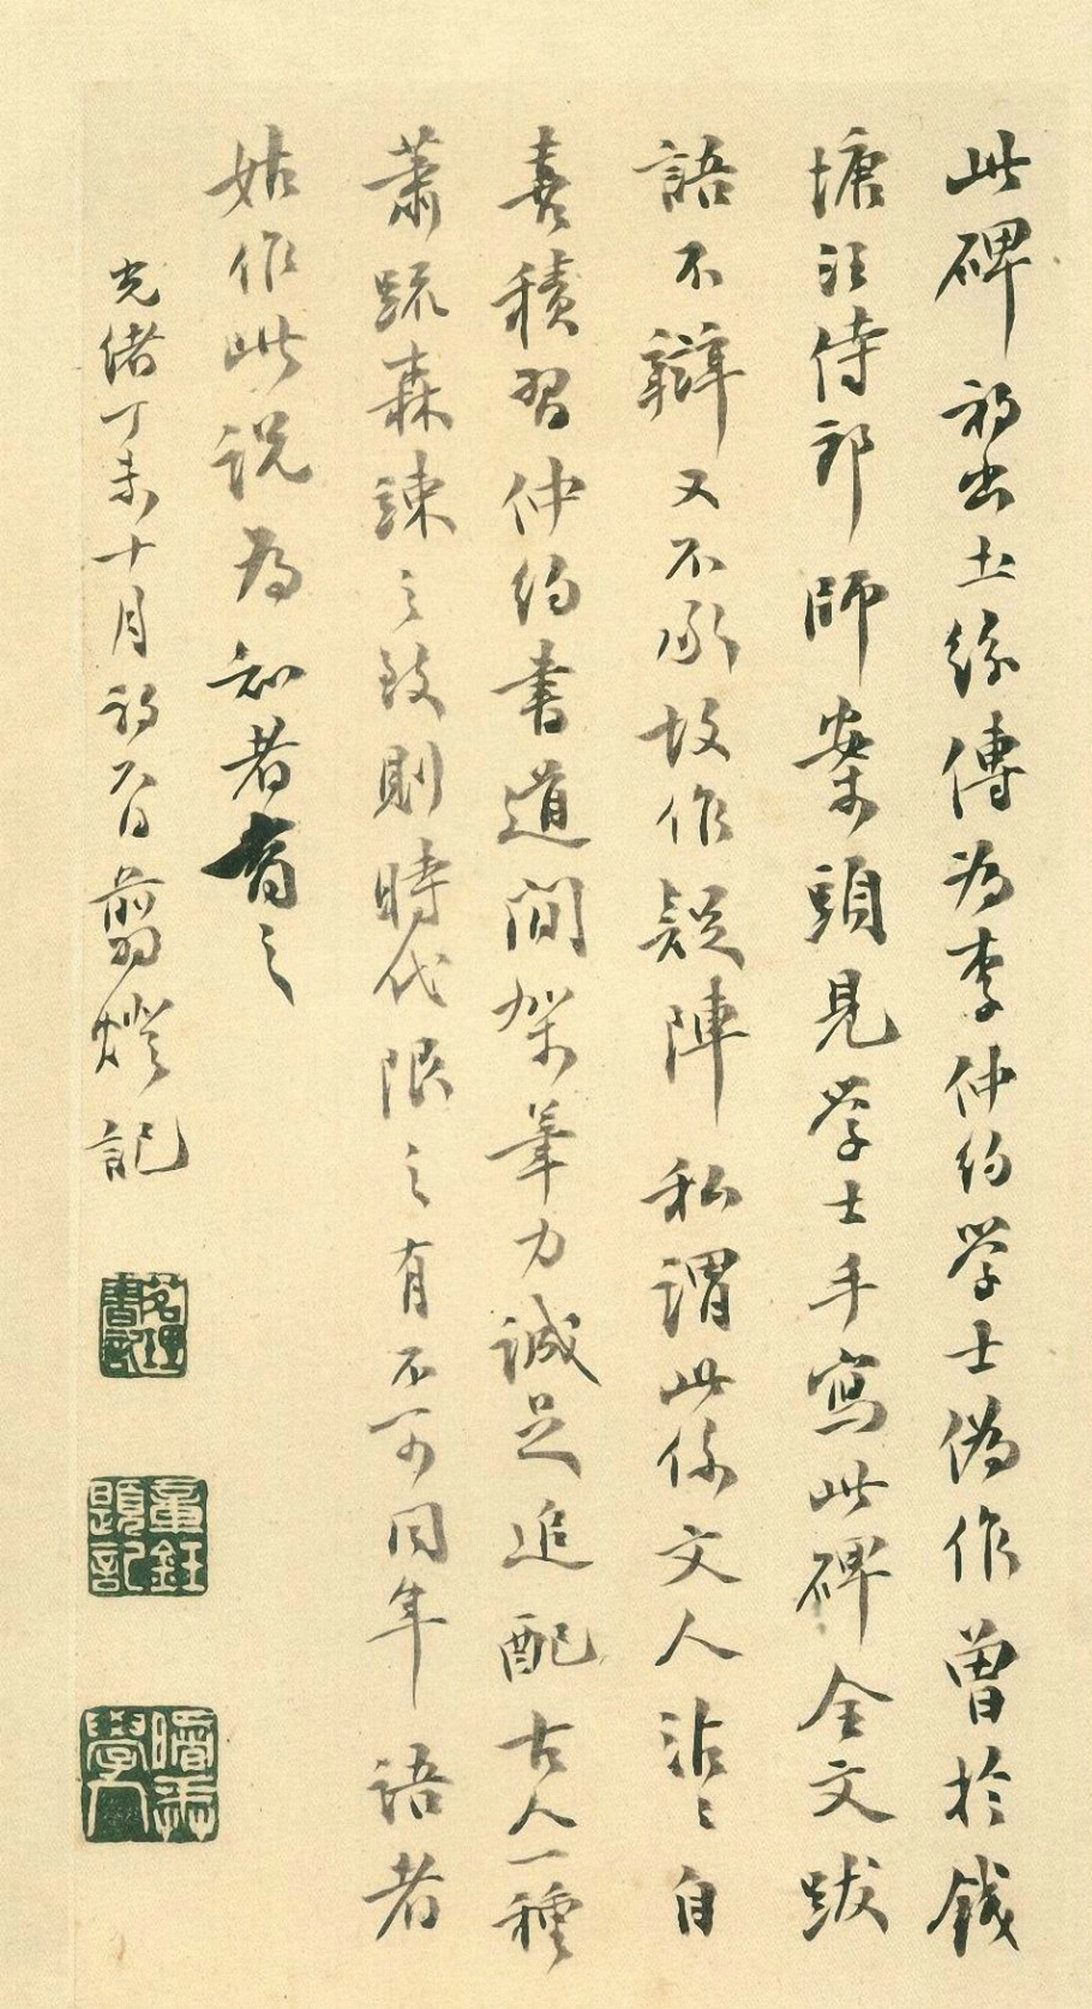 此碑初出土紛傳為李仲約學士偽作曾於錢
塘汪侍郎師案頭見學士手寫此碑全文跋
語不辯又不承故作疑陣私謂此係文人沾沾自
喜積習仲約書道間架筆力誠足追配古人一種
蕭疏森竦之致則時代限之有不可同年語者
姑作此說為知者質之
光緒丁未十月初八日翦燈記
茗理書記
章鈺題記
晦禾學人